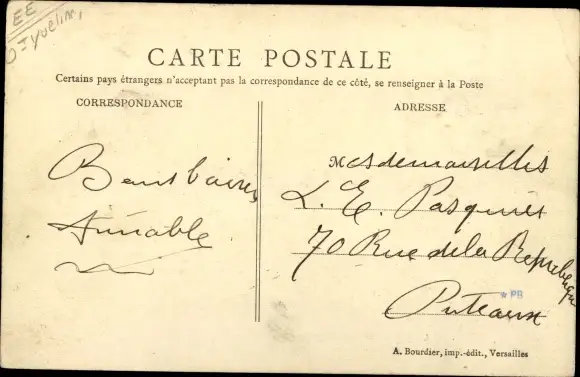 EE
CARTE POSTALE
Certains pays étrangers n'acceptant pas la correspondance de ce côté, se renseigner à la Poste
CORRESPONDANCE
ADRESSE
Mesdemoiselles
L. E. Pasquier
70 Rue de la République
Puteaux
Bons baisers
Aimable
PB
A. Bourdier, imp.-édit., Versailles